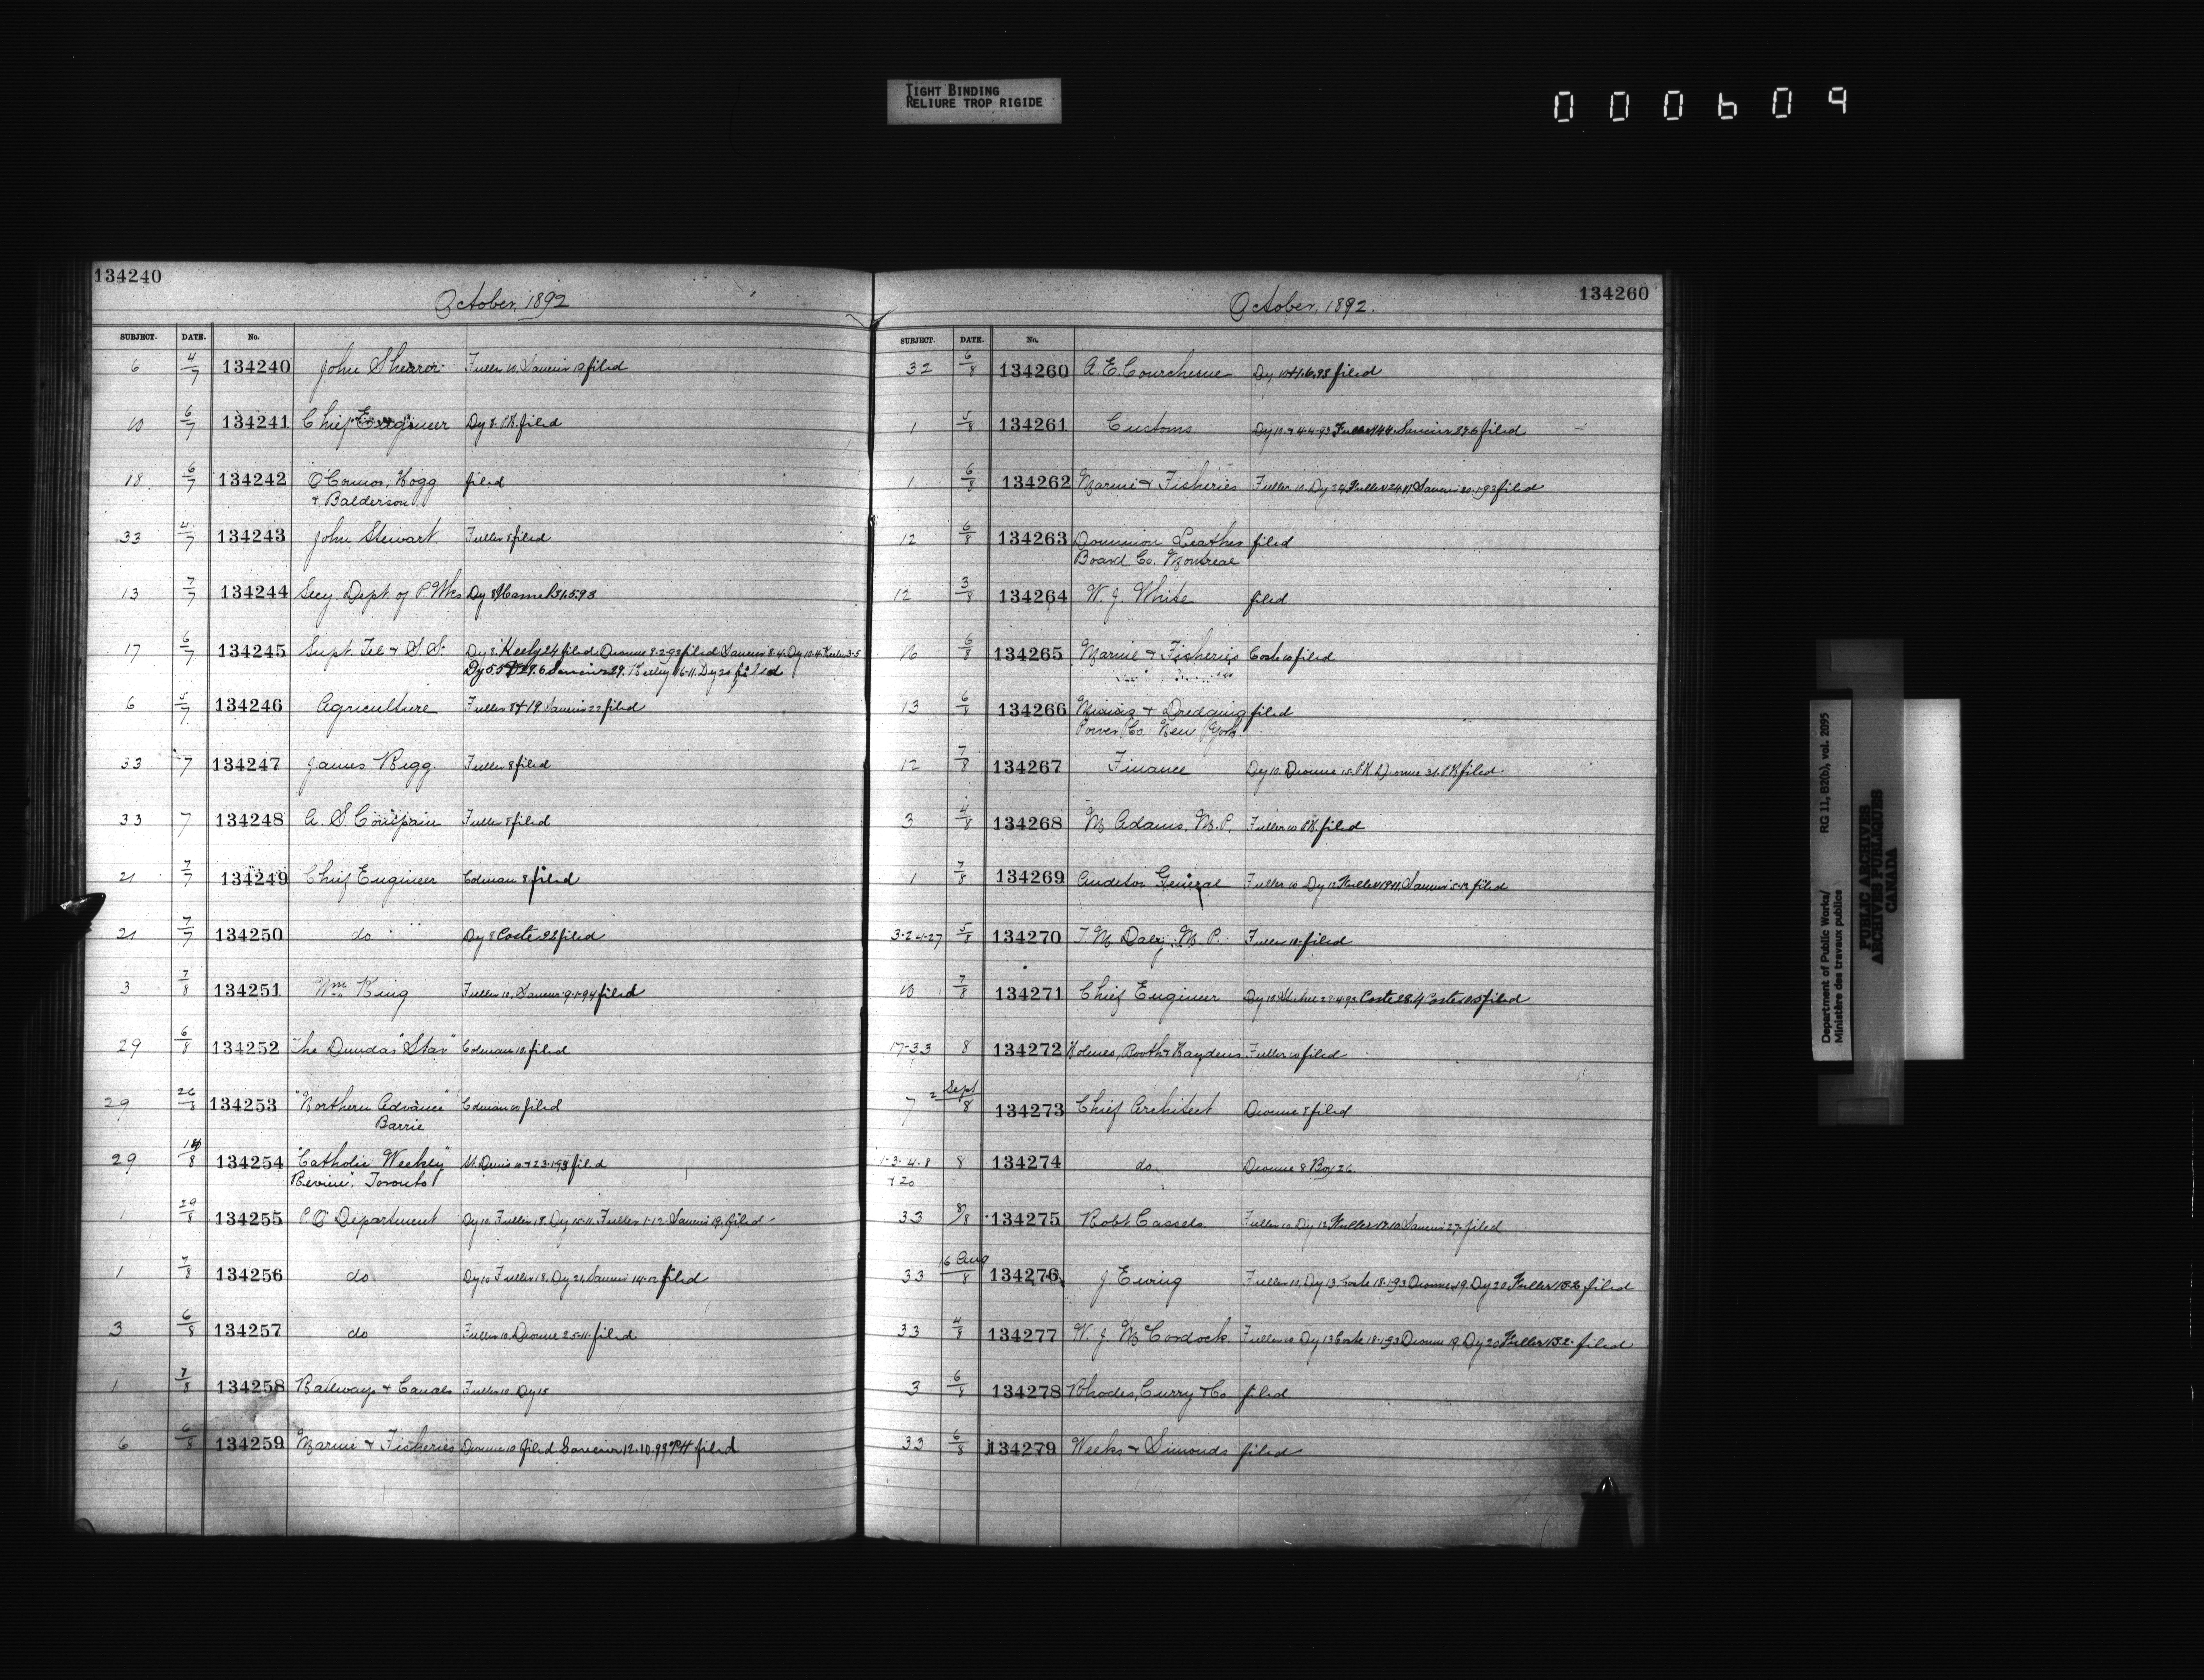 TIGHT BINDING
RELIURE TROP RIGIDE
000609
134240
October, 1892
SUBJECT. DATE. No.
6 4/7 134240 John Sherror Fuller 10, Saucier 19 filed
10 6/7 134241 Chief Engineer Dy 8. PK. filed
18 6/7 134242 O'Connor, Hogg filed
+ Balderson
33 4/7 134243 John Stewart Fuller 8 filed
13 7/7 134244 Secy. Dept. of P. Wks Dy 8
17 6/7 134245 Supt. Tel + S. S. Dy 8. Keeley 24 filed. Dionne 8.2.93 filed Saucier 8.4. Dy 10.4 3.5
Dy 5.5 29.6 Saucier 29. Keeley 16-11. Dy 20 filed
6 5/7 134246 Agriculture Fuller 8+19 Saucier 22 filed
33 7 134247 James Rigg Fuller 8 filed
33 7 134248 A. S. Fuller 8 filed
21 7/7 134249 Chief Engineer Colman 8 filed
21 7/7 134250 do. Dy 8 Coste filed
3 7/8 134251 Wm King Fuller 10, Saucier 9-1-94 filed
29 6/8 134252 The Dundas "Star" Colman 10 filed
29 26/8 134253 "Northern Advance" Colman 10 filed
Barrie
29 134254 "Catholic Weekly" St. Denis 10+23.1.93 filed
Review", Toronto
1 29/8 134255 P O Department Dy 10 Fuller 18. Dy 10-11. Fuller 1-12 Saucier 19. filed
1 7/8 134256 do Dy 10 Fuller 18. Dy 24 Saucier 14-12 filed
3 6/8 134257 do Fuller 10. Dionne 25-11. filed
1 7/8 134258 Railways + Canals Fuller 10. Dy 18
6 6/8 134259 Marine + Fisheries Dionne 10 filed Saucier 12.10.93 PK filed
134260
October, 1892.
SUBJECT. DATE. No.
32 6/8 134260 A. E. Courchesne Dy 10 filed
1 5/8 134261 Customs Dy 10 + 4.4.93 Fuller Saucier filed
1 6/8 134262 Marine + Fisheries Fuller 10. Dy 24 Fuller Saucier 20.1.93 filed
12 6/8 134263 Dominion Leather filed
Board Co. Montreal
12 3/8 134264 W. J. White filed
16 6/8 134265 Marine + Fisheries Coste 10 filed
13 6/8 134266 Mining + Dredging filed
Power Co. New York
12 7/8 134267 Finance Dy 10. Dionne 15. PK Dionne 31. PK filed
3 4/8 134268 M Adams, M. P. Fuller 10 PK. filed
1 7/8 134269 Auditor General Fuller 10 Dy 12 Saucier 5-12 filed
3-24-27 5/8 134270 T M Daly, M. P. Fuller 10. filed
10 7/8 134271 Chief Engineer Dy 10 Coste 28.4 Coste filed
17-33 8 134272 Holmes, Booth + Haydens Fuller 10 filed
7 2 Sept/8 134273 Chief Architect Dionne 8 filed
1-3-4-8 8 134274 do. Dionne 8 Boy 26
+20
33 8/8 134275 Robt Cassels Fuller 10 Dy 12 Saucier 27. filed
33 16 Aug/8 134276 J Ewing Fuller 10. Dy 13 Coste 18.1.93 Dionne 19. Dy 20 Fuller filed
33 4/8 134277 W. J. McCordock Fuller 10 Dy 13 Coste 18.1.93 Dionne 19. Dy 20 Fuller filed
3 6/8 134278 Rhodes, Curry + Co. filed
33 6/8 134279 Weeks + Simonds filed
Department of Public Works/
Ministère des travaux publics
RG 11, B2(b), vol. 2095
PUBLIC ARCHIVES
ARCHIVES PUBLIQUES
CANADA